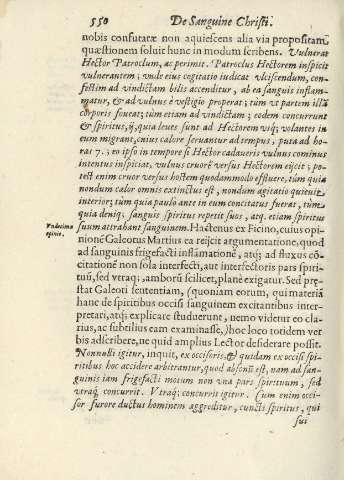 550 De Sanguine Christi.
nobis confutatæ non aquiescens alia via propositam
quæstionem soluit hunc in modum scribens. Vulnerat
Hector Patroclum, ac perimit. Patroclus Hectorem inspicit
vulnerantem; vnde eius cogitatio iudicat vlciscendum, con-
festim ad vindictam bilis accenditur, ab ea sanguis inflam-
matur, & ad vulnus è vestigio properat; tùm vt partem illã
corporis foueat; tùm etiam ad vindictam; eodem concurrunt
& spiritus, ij, quia leues sunt ad Hectorem vsq; volantes in
eum migrant, cuius calore seruantur ad tempus, puta ad ho-
ras 7. eo ipso in tempore si Hector cadaueris vulnus cominus
intentus inspiciat, vulnus cruorẽ versus Hectorem eijcit; po-
test enim cruor versus hostem quodammodo effluere, tùm quia
nondum calor omnis extinctus est, nondum agitatio quieuit
interior; tùm quia paulò ante in eum concitatus fuerat, tũm
quia deniq; sanguis spiritus repetit suos, atq. etiam spiritus
suum attrahant sanguinem. Hactenus ex Ficino, cuius opi-
nionẽ Galeotus Martius ea reijcit argumentatione, quod
ad sanguinis frigefacti inflãmationẽ, atq; ad fluxus cõ-
citationẽ non sola interfecti, aut interfectoris pars spiri-
tuũ, sed vtraq; , amborũ scilicet, planè exigatur. Sed præ-
stat Galeoti sententiam, (quoniam eorum, qui materiã
hanc de spiritibus occisi sanguinem excitantibus inter-
pretari, atq; explicare studuerunt, nemo videtur eo cla-
rius, ac subtilius eam examinasse,) hoc loco totidem ver-
bis adscribere, ne quid amplius Lector desiderare possit.
Nonnulli igitur, inquit, ex occisoris, & quidam ex occisi spi-
ritibus hoc accidere arbitrantur, quod absonũ est, nam ad san-
guinis iam frigefacti motum non vna pars spirituum, sed
vtraq; concurrit. Vtraq; concurrit igitur. Cum enim occi-
sor furore ductus hominem aggreditur, cuncti spiritus, qui
sui